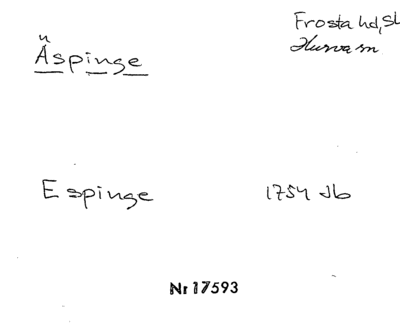 n
Äspinge
Frosta hd, Sk
Hurva sn
Espinge 1754 Jb
Nr 17593